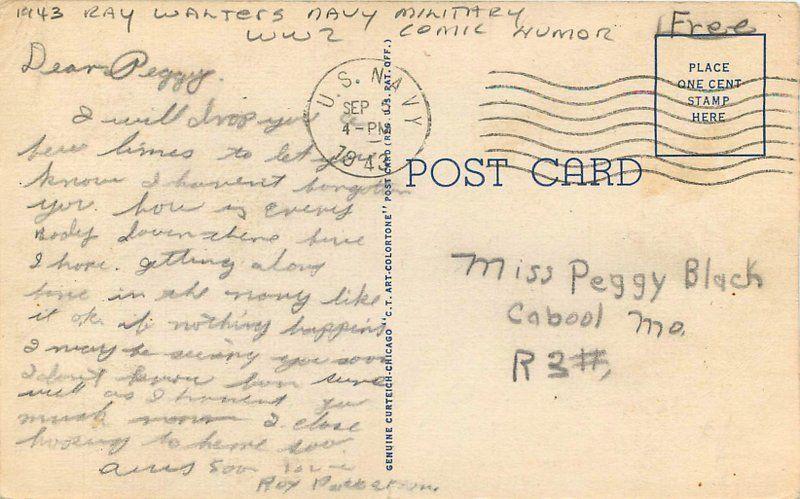 1943 RAY WALTERS NAVY MILITARY
WW2 COMIC HUMOR
Free
PLACE
ONE CENT
STAMP
HERE
U.S. NAVY
SEP
4-PM
1943
POST CARD
GENUINE CURTEICH-CHICAGO "C.T. ART-COLORTONE" POST CARD (REG. U.S. PAT. OFF.)
Dear Peggy.
I will drop you a
few limes to let you
know I havent forgotten
you. how is every
body down there fine
I hope. getting along
fine in the navy like
it ok. if nothing happins
I may be seeing you soon
I don't know for sure
well as I havent
much I close
hopeing to here soo
soon
Roy
Miss Peggy Black
Cabool Mo.
R 3#,